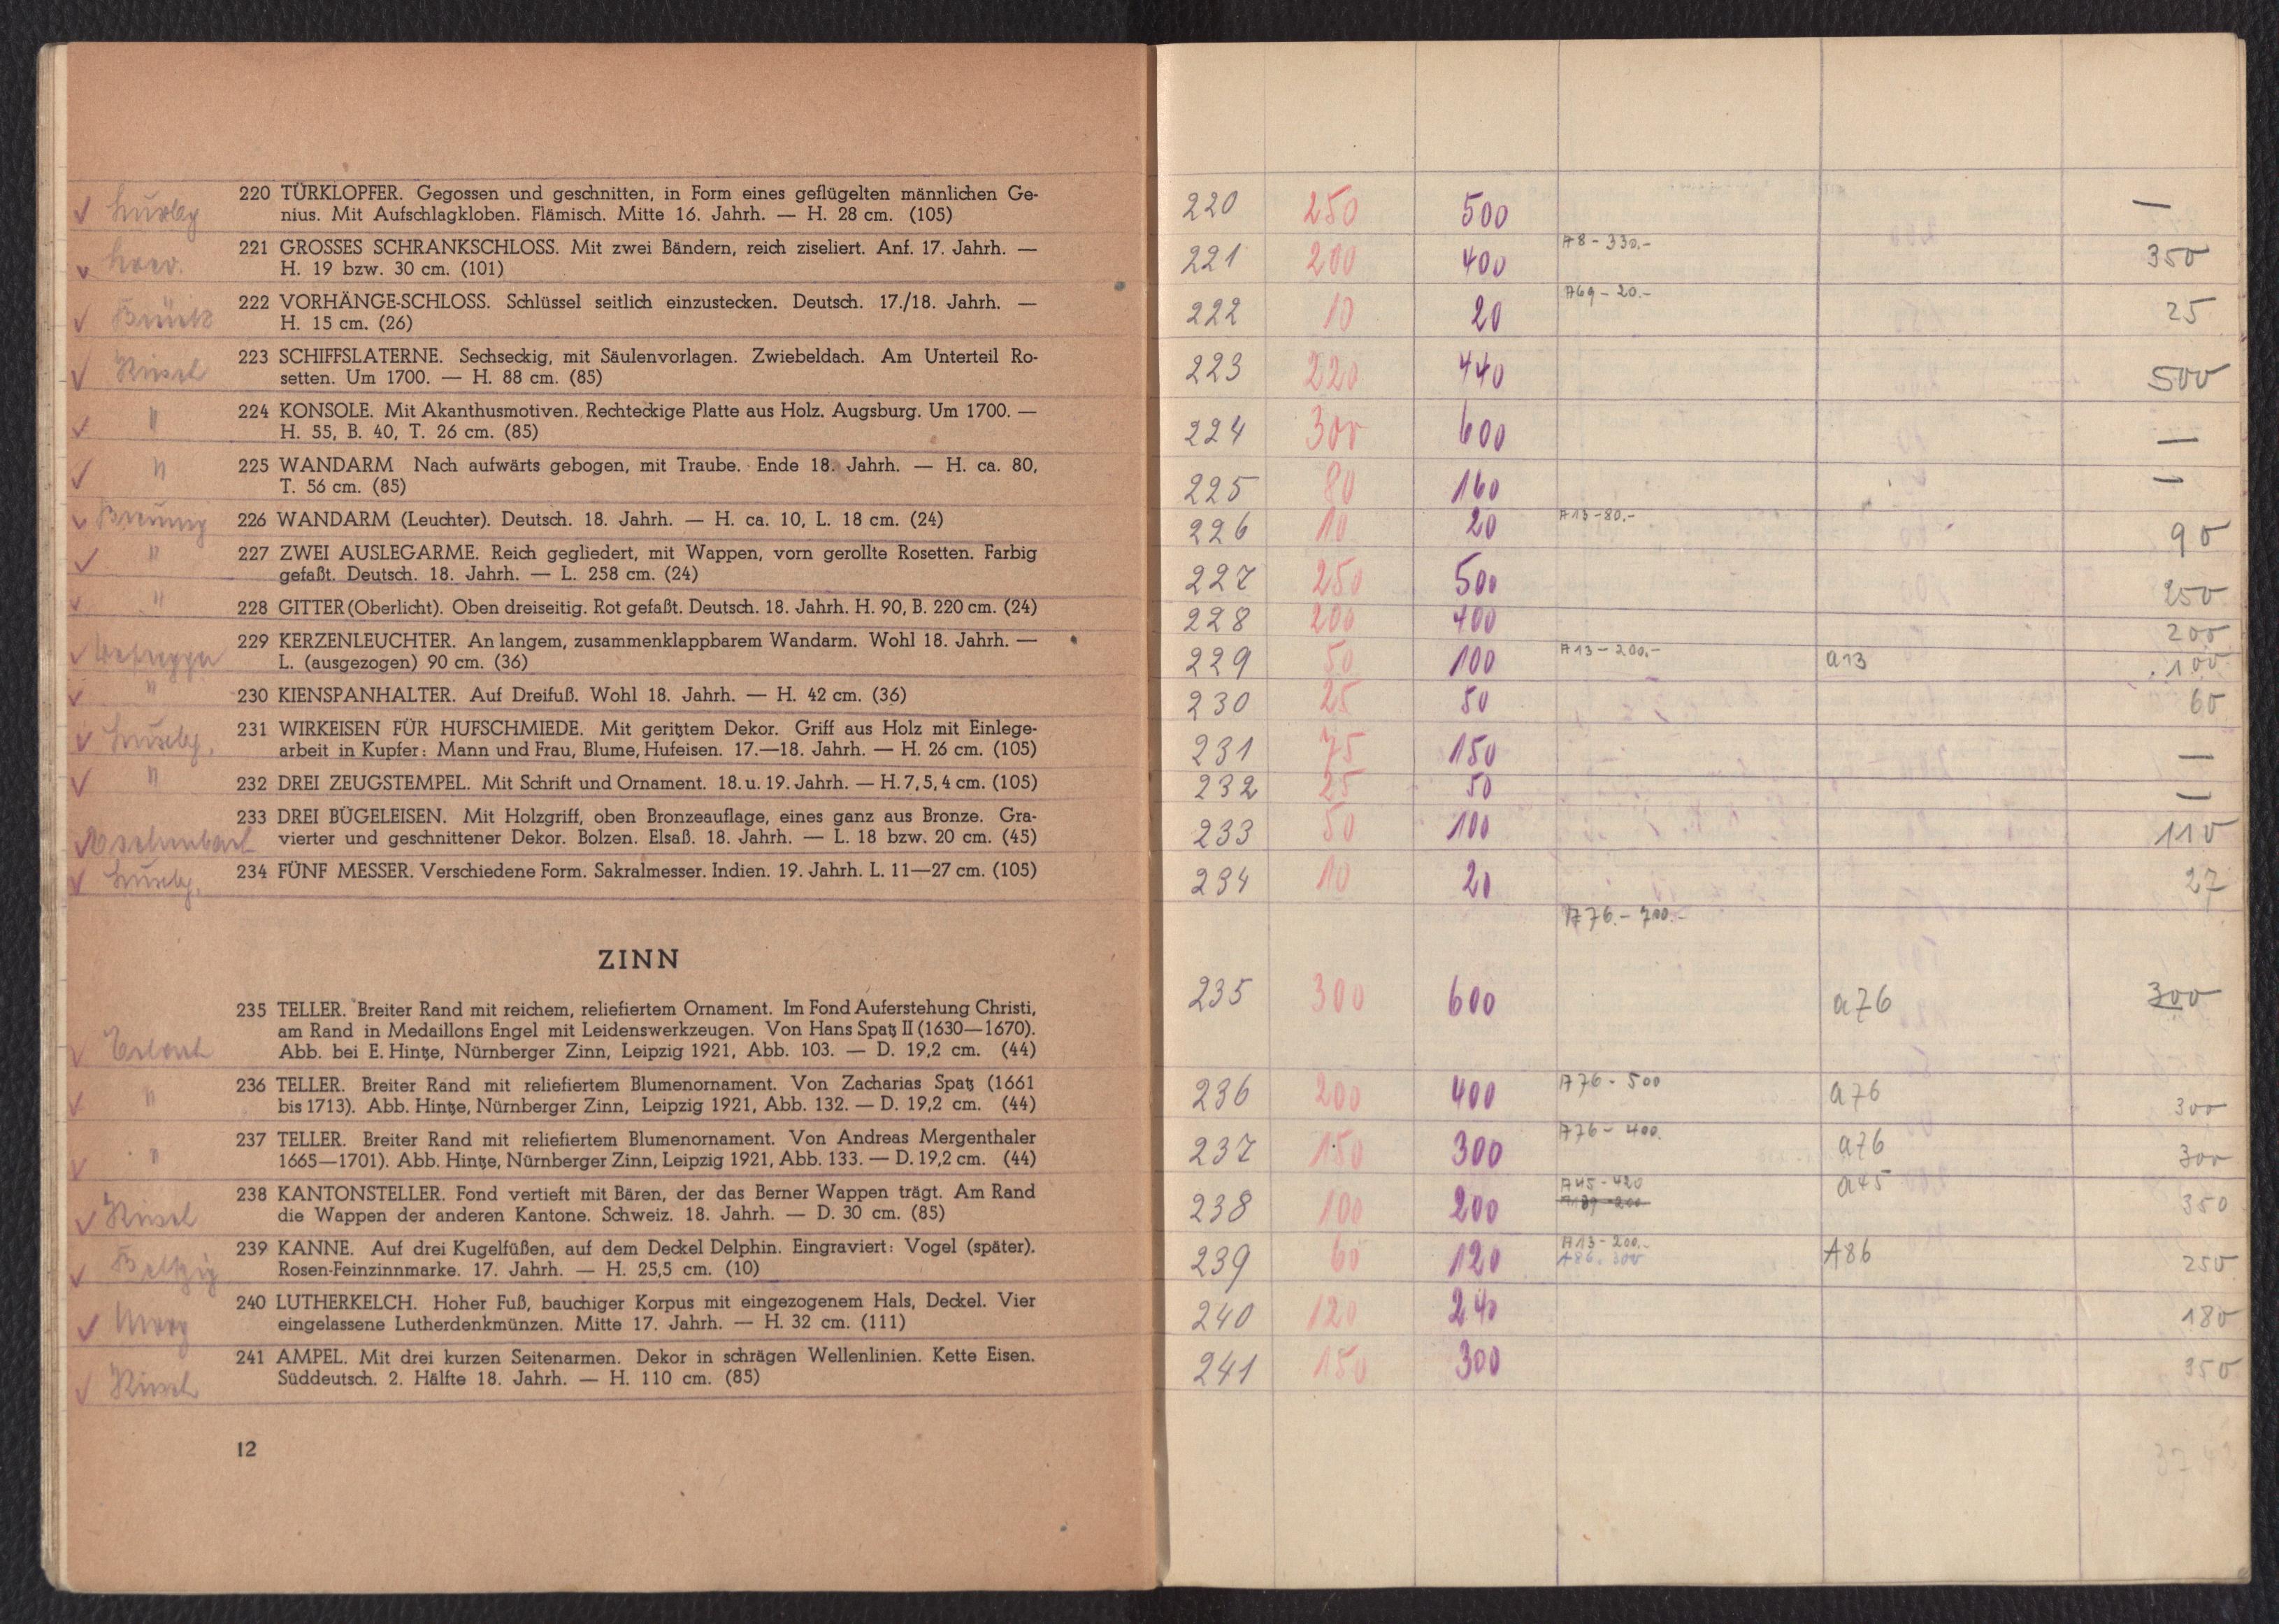 220 TÜRKLOPFER. Gegossen und geschnitten, in Form eines geflügelten männlichen Ge-
nius. Mit Aufschlagkloben. Flämisch. Mitte 16. Jahrh. — H. 28 cm. (105)
221 GROSSES SCHRANKSCHLOSS. Mit zwei Bändern, reich ziseliert. Anf. 17. Jahrh. —
H. 19 bzw. 30 cm. (101)
222 VORHÄNGE-SCHLOSS. Schlüssel seitlich einzustecken. Deutsch. 17./18. Jahrh. —
H. 15 cm. (26)
223 SCHIFFSLATERNE. Sechseckig, mit Säulenvorlagen. Zwiebeldach. Am Unterteil Ro-
setten. Um 1700. — H. 88 cm. (85)
" 224 KONSOLE. Mit Akanthusmotiven. Rechteckige Platte aus Holz. Augsburg. Um 1700. —
H. 55, B. 40, T. 26 cm. (85)
" 225 WANDARM Nach aufwärts gebogen, mit Traube. Ende 18. Jahrh. — H. ca. 80,
T. 56 cm. (85)
226 WANDARM (Leuchter). Deutsch. 18. Jahrh. — H. ca. 10, L. 18 cm. (24)
" 227 ZWEI AUSLEGARME. Reich gegliedert, mit Wappen, vorn gerollte Rosetten. Farbig
gefaßt. Deutsch. 18. Jahrh. — L. 258 cm. (24)
" 228 GITTER (Oberlicht). Oben dreiseitig. Rot gefaßt. Deutsch. 18. Jahrh. H. 90, B. 220 cm. (24)
229 KERZENLEUCHTER. An langem, zusammenklappbarem Wandarm. Wohl 18. Jahrh. —
L. (ausgezogen) 90 cm. (36)
" 230 KIENSPANHALTER. Auf Dreifuß. Wohl 18. Jahrh. — H. 42 cm. (36)
231 WIRKEISEN FÜR HUFSCHMIEDE. Mit geritztem Dekor. Griff aus Holz mit Einlege-
arbeit in Kupfer: Mann und Frau, Blume, Hufeisen. 17.—18. Jahrh. — H. 26 cm. (105)
" 232 DREI ZEUGSTEMPEL. Mit Schrift und Ornament. 18. u. 19. Jahrh. — H. 7, 5, 4 cm. (105)
233 DREI BÜGELEISEN. Mit Holzgriff, oben Bronzeauflage, eines ganz aus Bronze. Gra-
vierter und geschnittener Dekor. Bolzen. Elsaß. 18. Jahrh. — L. 18 bzw. 20 cm. (45)
234 FÜNF MESSER. Verschiedene Form. Sakralmesser. Indien. 19. Jahrh. L. 11—27 cm. (105)
ZINN
235 TELLER. Breiter Rand mit reichem, reliefiertem Ornament. Im Fond Auferstehung Christi,
am Rand in Medaillons Engel mit Leidenswerkzeugen. Von Hans Spatz II (1630—1670).
Abb. bei E. Hintze, Nürnberger Zinn, Leipzig 1921, Abb. 103. — D. 19,2 cm. (44)
" 236 TELLER. Breiter Rand mit reliefiertem Blumenornament. Von Zacharias Spatz (1661
bis 1713). Abb. Hintze, Nürnberger Zinn, Leipzig 1921, Abb. 132. — D. 19,2 cm. (44)
" 237 TELLER. Breiter Rand mit reliefiertem Blumenornament. Von Andreas Mergenthaler
1665—1701). Abb. Hintze, Nürnberger Zinn, Leipzig 1921, Abb. 133. — D. 19,2 cm. (44)
238 KANTONSTELLER. Fond vertieft mit Bären, der das Berner Wappen trägt. Am Rand
die Wappen der anderen Kantone. Schweiz. 18. Jahrh. — D. 30 cm. (85)
239 KANNE. Auf drei Kugelfüßen, auf dem Deckel Delphin. Eingraviert: Vogel (später).
Rosen-Feinzinnmarke. 17. Jahrh. — H. 25,5 cm. (10)
240 LUTHERKELCH. Hoher Fuß, bauchiger Korpus mit eingezogenem Hals, Deckel. Vier
eingelassene Lutherdenkmünzen. Mitte 17. Jahrh. — H. 32 cm. (111)
241 AMPEL. Mit drei kurzen Seitenarmen. Dekor in schrägen Wellenlinien. Kette Eisen.
Süddeutsch. 2. Hälfte 18. Jahrh. — H. 110 cm. (85)
12
220 250 500 —
221 200 400 A8 - 330.- 350
222 10 20 A69 - 20.- 25
223 220 440 500
224 300 600 —
225 80 160 —
226 10 20 A13 - 80.- 90
227 250 500 250
228 200 400 200
229 50 100 A13 - 200.- a13 100
230 25 50 60
231 75 150 —
232 25 50 —
233 50 100 110
234 10 20 27
A76.- 700.-
235 300 600 a76 300
236 200 400 A76 - 500 a76 300
237 150 300 A76 - 400. a76 300
238 100 200 A45 - 420 a45 350
239 60 120 A13 - 200.- A86 250
A86. 300
240 120 240 180
241 150 300 350